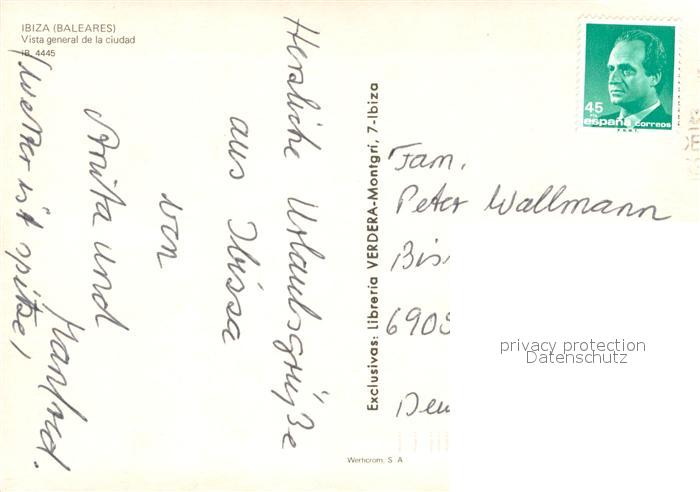 IBIZA (BALEARES)
Vista general de la ciudad
IB. 4445
Herzliche Urlaubsgrüße
aus Ibissa
von
Anita und
Manfred.
(Wetter ist spitze)
Exclusivas: Librería VERDERA-Montgri, 7-Ibiza
45
PTA
españa correos
F.N.M.T.
Fam.
Peter Wallmann
Bis
6908
Deu
privacy protection
Datenschutz
Werticrom, S. A